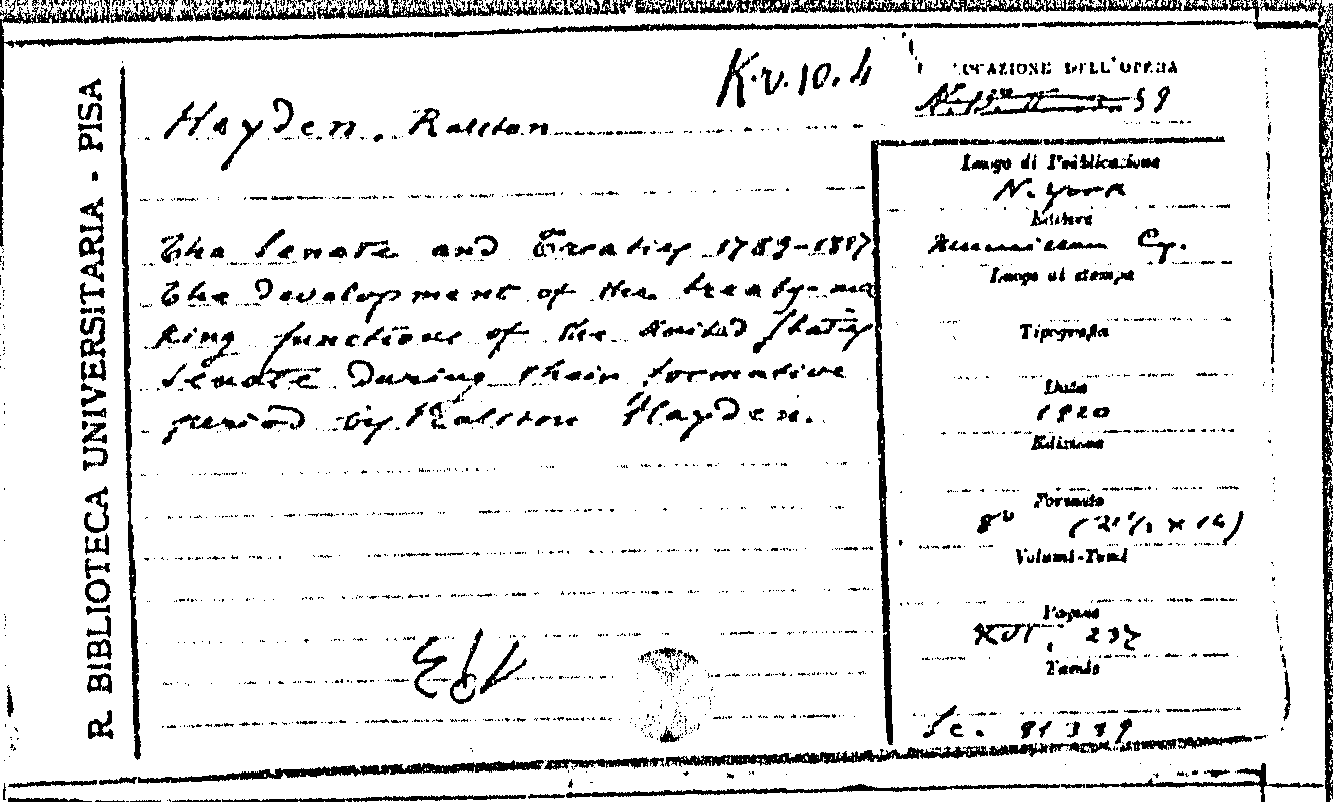 R. BIBLIOTECA UNIVERSITARIA - PISA
K.v.10.4
Hayden, Ralston
The Senate and Treaties 1789-1817.
The development of the treaty-ma
king functions of the United States
Senate during their formative
period by Ralston Hayden.
LOCAZIONE DELL'OPERA
59
Luogo di Pubblicazione
N. York
Editore
Macmillan Cy.
Luogo di stampa
Tipografia
Data
1920
Edizione
Formato
8° (21½ x 14)
Volumi-Tomi
Pagine
XVI, 237
Tomo
Sc. 81389